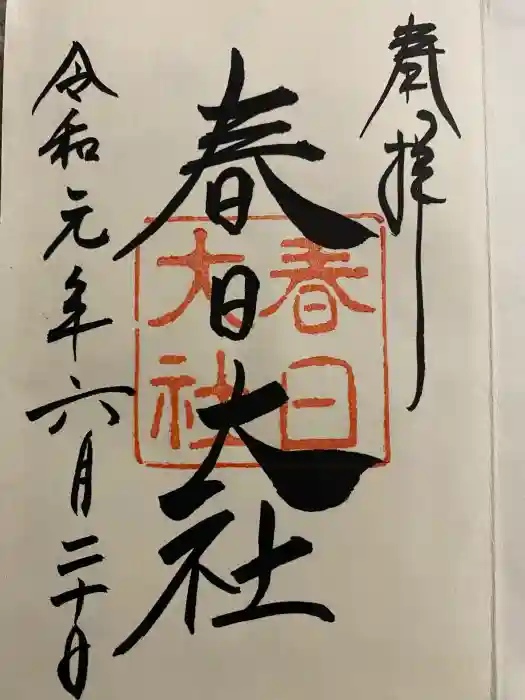 奉拝
春日大社
春日
大社
令和元年六月二十日